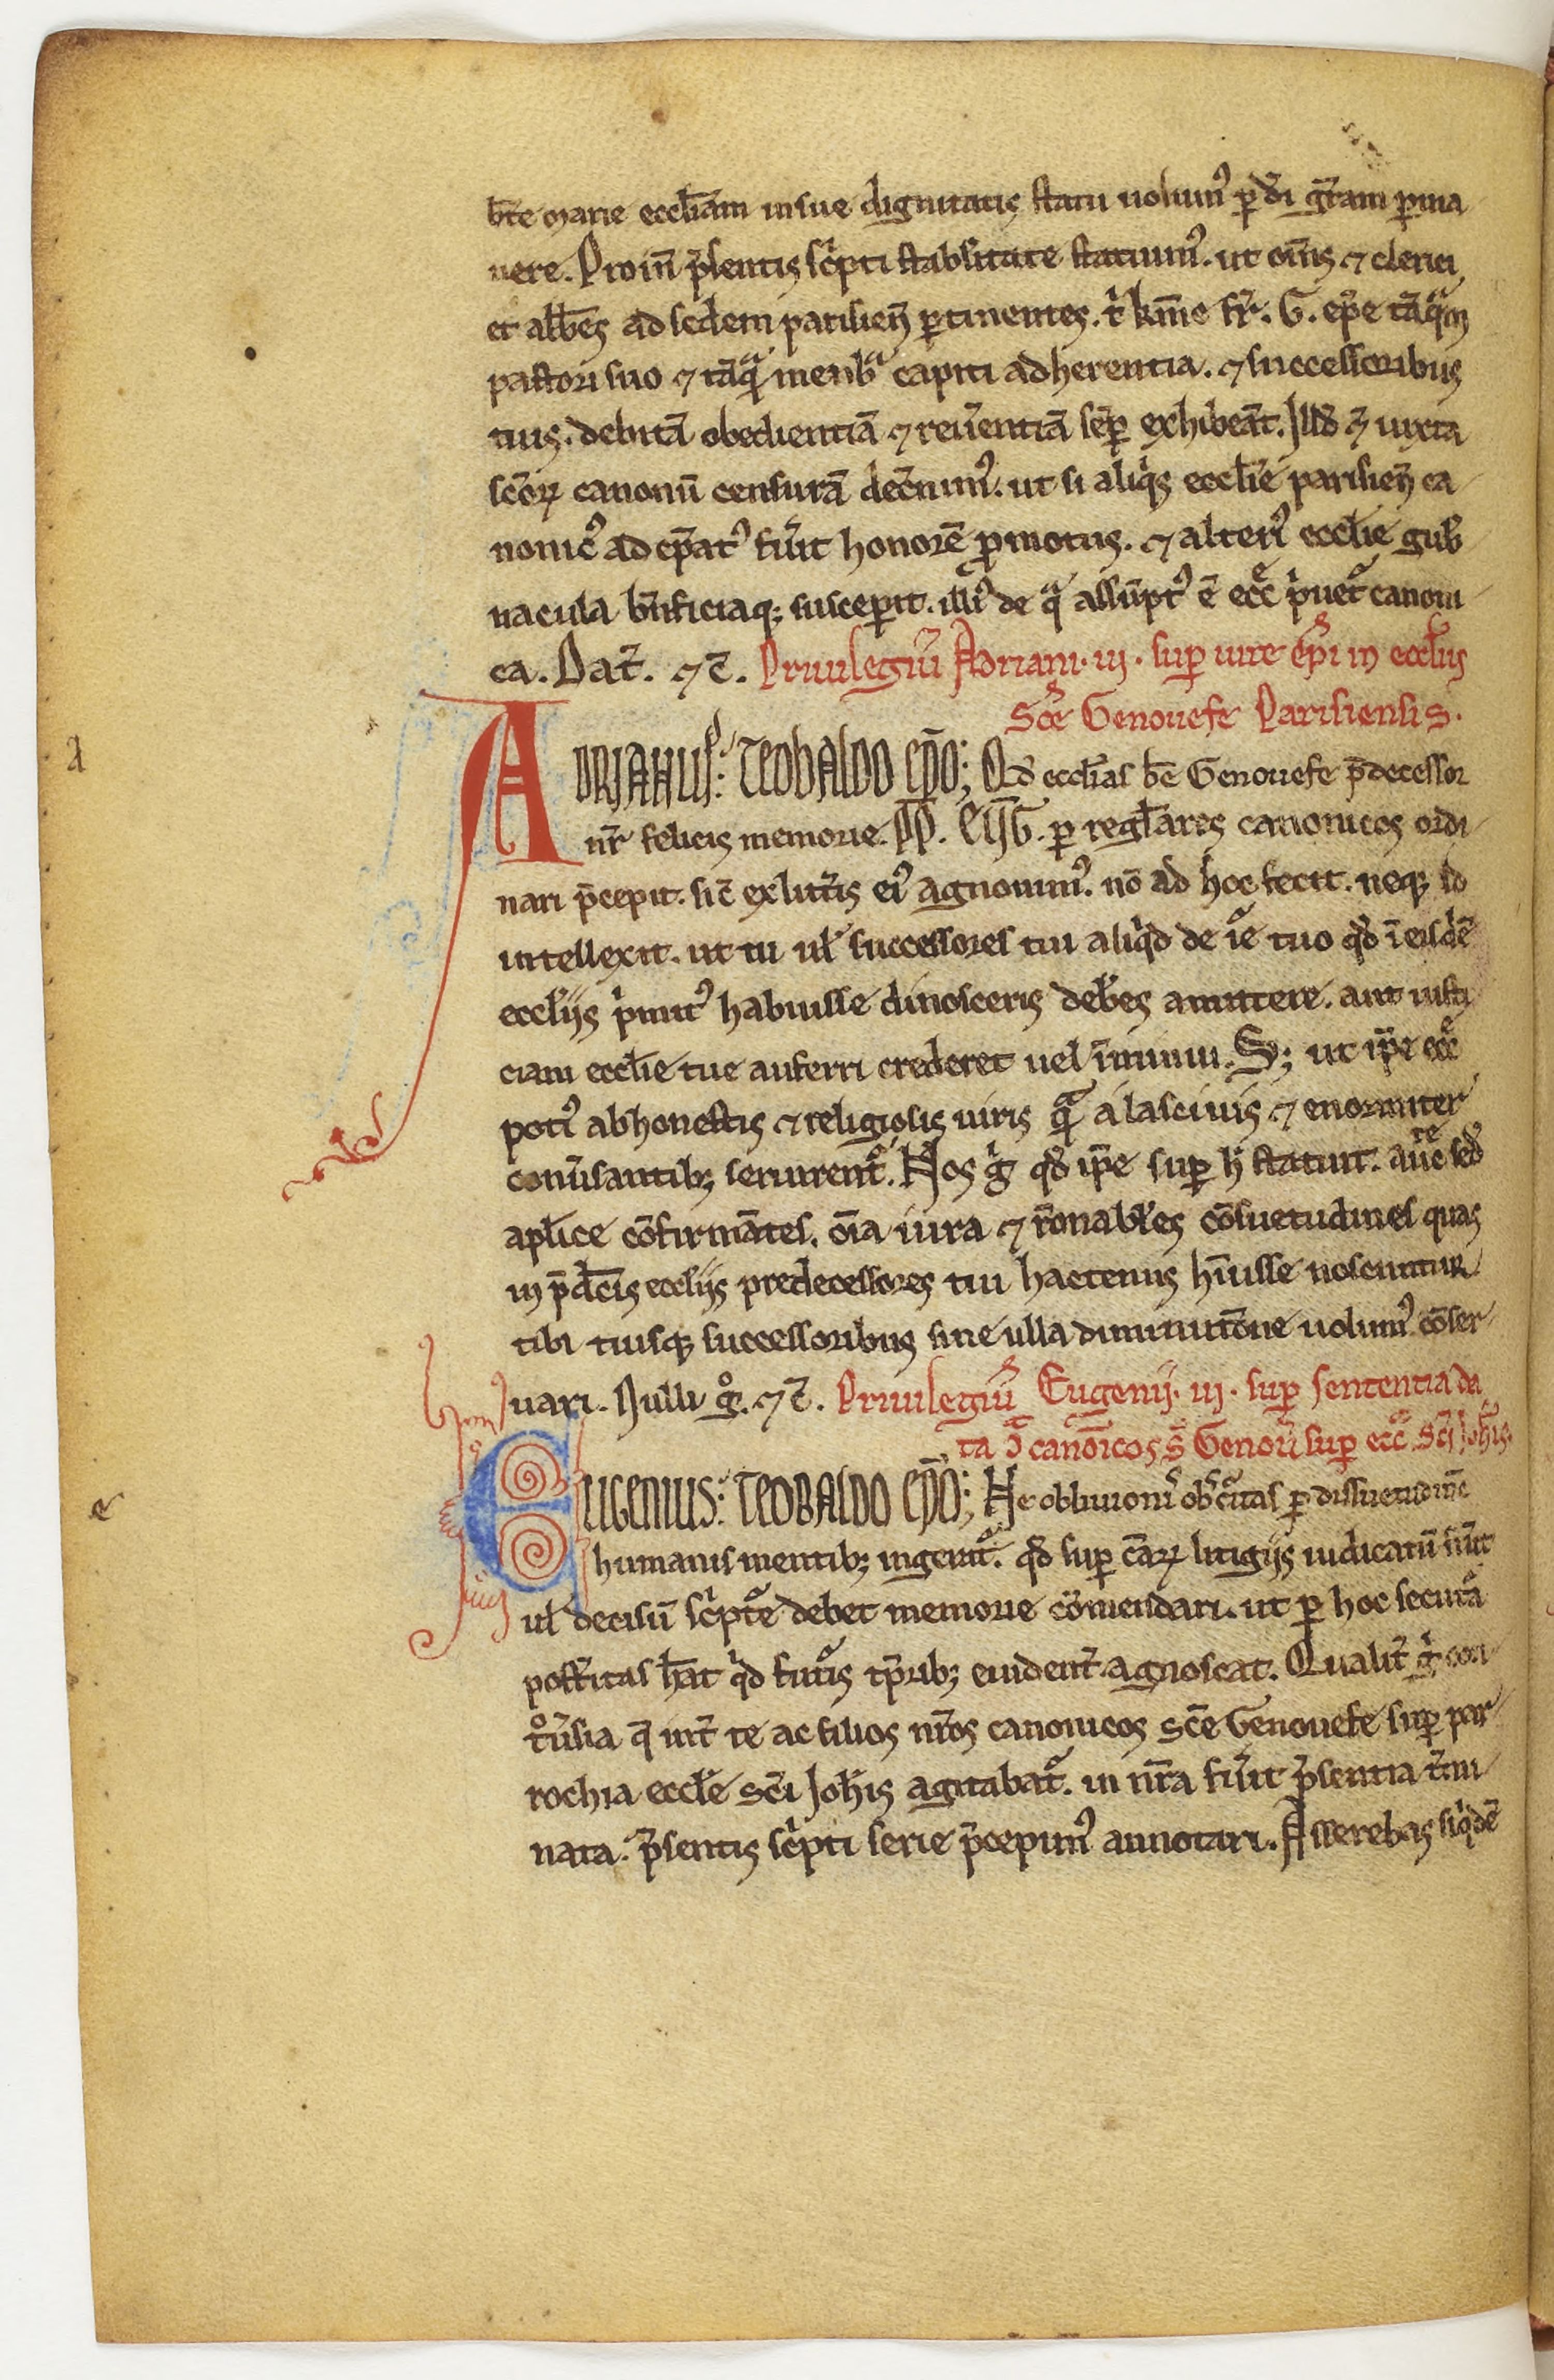 bt̄e marie eccl̄iam in sue dignitatis statu uolum᷒ ꝑ dī gr̄am ꝑma
nere. Proin̄ p̄sentis sc̓pti stabilitate statuim᷒. ut om̄s ⁊ clerici
et abb̄es ad sedem parisien̄ ꝑtinentes. t̓ km̄e fr̄. G. ep̄e tāqͣm
pastori suo ⁊ tāqͣ menbͣ capiti adherentia. ⁊ successoribus
tuis. debitā obedientiā ⁊ reu̓entiā sēꝑ exhibeāt. Illd̓ ⁊ iuxta
sc̄oꝝ canonū censurā dec̓nim᷒. ut si aliq̓s eccl̄ie parisien̄ ca
nonic᷒ ad ep̄at᷒ fu̓it honorē ꝓmotus. ⁊ alteri᷒ eccl̄ie gub̓
nacula bn̄ficiaqꝫ susceꝑit. illi᷒ de qͣ assūpt᷒ ē ecc̄ p̓uet᷑ canoni
ca. Dat̄. ⁊ c̄. Priuilegiū Adriani. iiii. suꝑ iure ep̄i in eccl̄iis
Sc̄e Genouefe Parisiensis.
ADRIANUS. TEOBALDO EP̄O; Qd̓ eccl̄ias bē Genouefe p̄decessor
nr̄ felicis memorie. PP. EUG. ꝑ regl̄ares canonicos ordi
nari p̄cepit. sic̄ ex litt̄is ei᷒ agnouim᷒. nō ad hoc fecit. neqꝫ id
intellexit. ut tu ul̓ successores tui aliq̓d de iē tuo qd̓ ī eisdē
eccl̄iis p̓mit᷒ habuisse dinosceris deb̓es amittere. aut iusti
ciam eccl̄ie tue auferri crederet uel īminui. Sꝫ ut ip̄e ecc̄
poti᷒ ab honestis ⁊ religiosis uiris qͣ a lasciuis ⁊ enormiter
conu̓santibꝫ seruirent᷑. Nos g̓ qd̓ ip̄e suꝑ h̓ statuit. auc̄te sed̓
apl̄ice cōfirmātes. om̄ia iura ⁊ rōnabil̓es cōsuetudines quas
in p̄dc̄is eccl̄iis predecessores tui hactenus hūisse noscuntur
tibi tuisqꝫ successoribus sine ulla diminutōne uolum᷒ cōser
uari. Nulli g̊. ⁊ c̄. Priuilegiū Eugenii. iii. suꝑ sententia da
ta ↄ̄ canōicos s̄ Genoū suꝑ ecc̄ Sc̄i Ioh̄is.
EUGENIUS. TEOBALDO EP̄O; Ne obliuioni᷒ obscuritas ꝑ dissuetudinē
humanis mentibꝫ ingerat᷑. qd̓ suꝑ cāꝝ litigiis iudicatū fu̓it
ul̓ decisū sc̓pt᷑e debet memorie cōmendari. ut ꝑ hoc secut᷑a
post̓itas h̄at q̓d fut᷑is tp̄ribꝫ euident̄ agnoscat. Qualit̄ g̓ con
t᷑u̓sia q̄ int̄ te ac filios nr̄os canonicos sc̄e Genouefe suꝑ par
rochia eccl̄e sc̄i Ioh̄is agitabat᷑. in nr̄a fu̓it p̄sentia t̓mi
nata. p̄sentis sc̓pti serie p̄cepim᷒ annotari. Asserebas siq̓dē
a
e